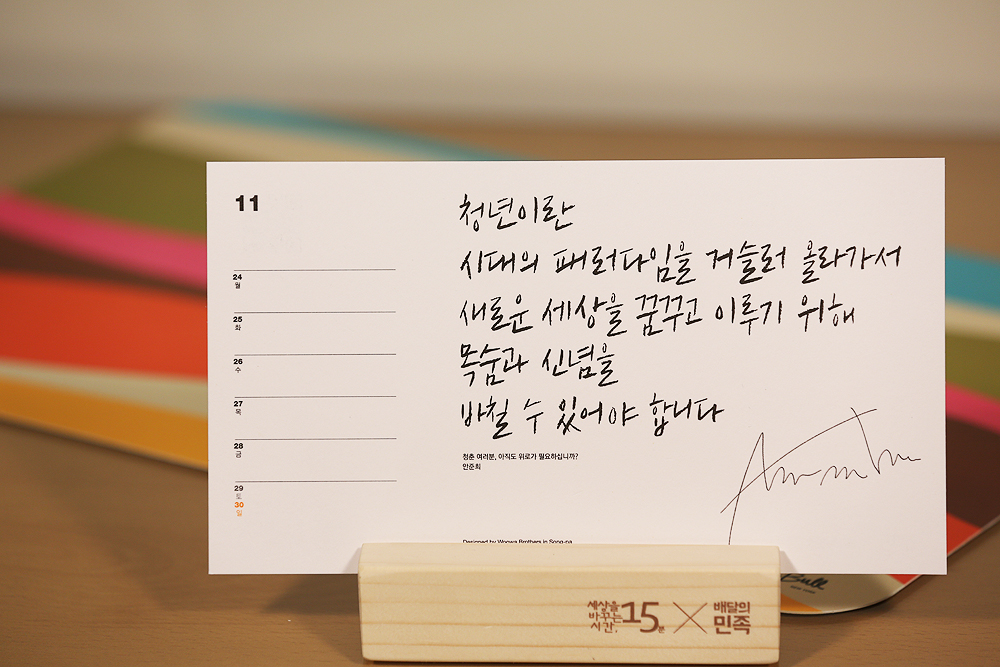 11
24
월
25
화
26
수
27
목
28
금
29
토
30
일
청년이란
시대의 패러다임을 거슬러 올라가서
새로운 세상을 꿈꾸고 이루기 위해
목숨과 신념을
바칠 수 있어야 합니다
청춘 여러분, 아직도 위로가 필요하십니까?
안준희
Designed by Woowa Brothers in Song-pa
세상을
바꾸는
시간,
15분
배달의
민족
Bull